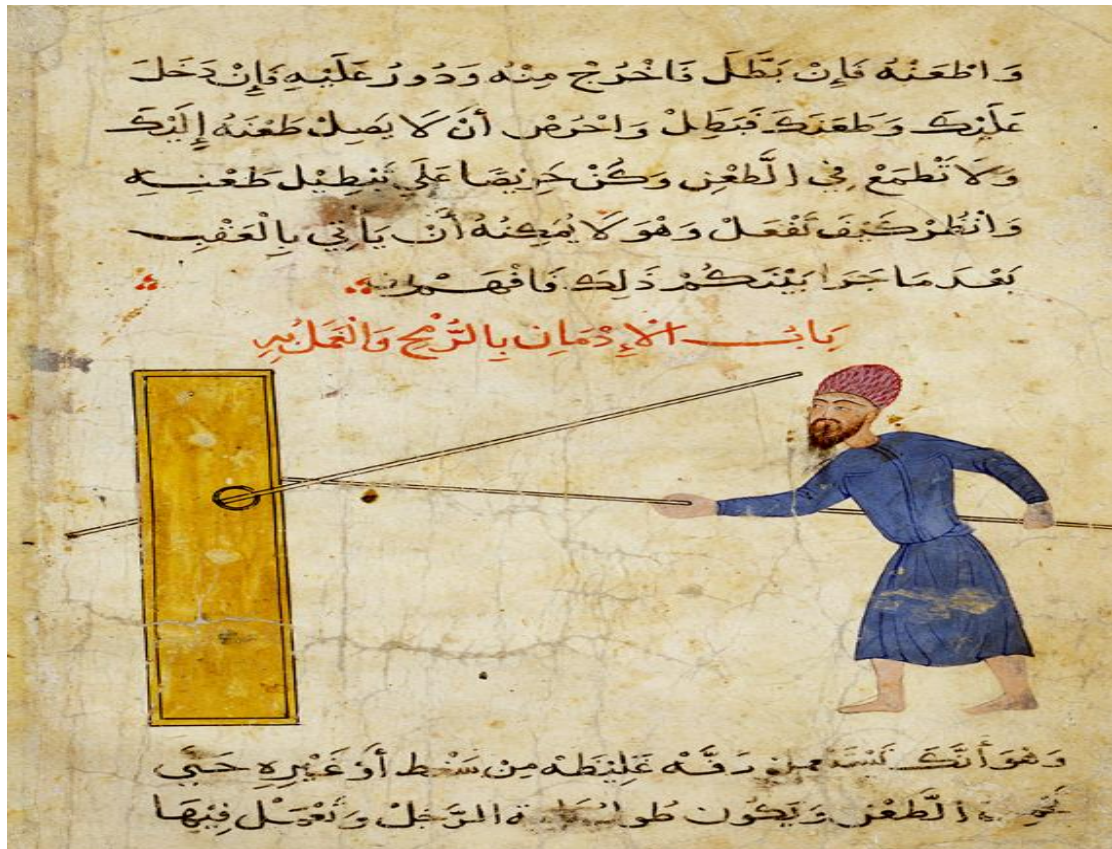 وَاطْعَنْهُ فَإِنْ بَطَّلَ فَاخْرُجْ مِنْهُ وَدُورُ عَلَيْهِ فَإِنْ دَخَلَ
عَلَيْكَ وَطَعَنَكَ فَبَطِلْ وَاحْرُصْ أَنْ لَا يَصِلْ طَعْنَهُ إِلَيْكَ
وَلَا تَطْمَعْ فِي الَّطَعْنِ وَكُنْ حَرِيصًا عَلَي تَبْطِيْل طَعْنِهِ
وَانْظُرْ كَيْفَ تَفْعَلْ وَهْوَ لَا يُمَكِنُهُ أَنْ يَأْتِي بِالْعَقْبِ
بَعْدَ مَا جَرَا بَيْنَكُمْ ذَلِكَ فَافْهَمْ
بَابُ الْإِدْمَانِ بِالرُّمْحِ وَالْعَمَلُ بِهِ
وَهْوَ أَنَّكَ دَفَّه غَلِيْظَه مِنْ سَنْط أَوْ غَيْرِهِ حَتَّي
الَّطَعْنِ وَيَكُون الرَّجُلْ وَتَعْمَلْ فِيْهَا